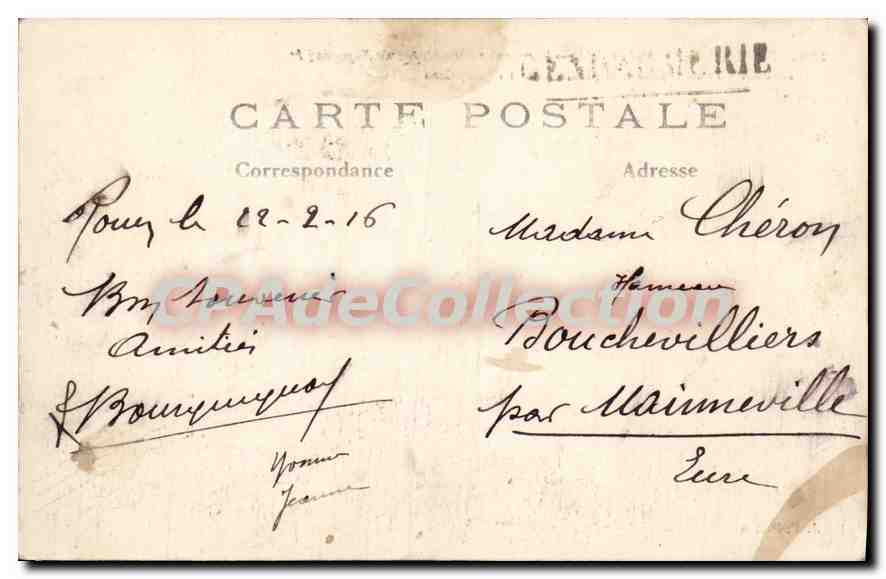 GENDARMERIE
CARTE POSTALE
Correspondance
Adresse
le 22-2-16
Bon Souvenir
Amitiés
Bourguignon
Yvonne
Jeanne
Madame Chéron
Hameau
Bouchevilliers
par Mainneville
Eure
CPAdeCollection